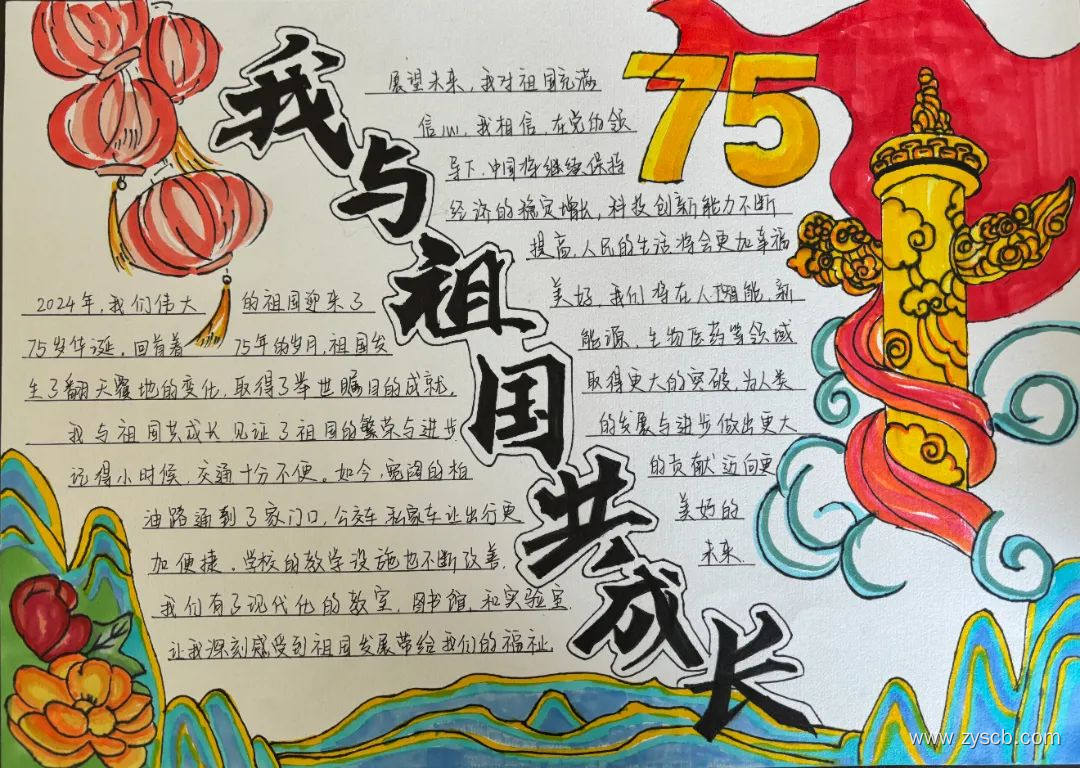 我与祖国共成长
75
2024年,我们伟大的祖国迎来了
75岁华诞。回首着75年的岁月,祖国发
生了翻天覆地的变化,取得了举世瞩目的成就。
我与祖国共成长见证了祖国的繁荣与进步
记得小时候,交通十分不便。如今,宽阔的柏
油路通到了家门口,公交车私家车让出行更
加便捷。学校的教学设施也不断改善,
我们有了现代化的教室,图书馆,和实验室
让我深刻感受到祖国发展带给我们的福祉。
展望未来,我对祖国充满
信心,我相信,在党的领
导下,中国将继续保持
经济的稳定增长,科技创新能力不断
提高,人民的生活将会更加幸福
美好,我们将在人工智能,新
能源,生物医药等领域
取得更大的突破,为人类
的发展与进步做出更大
的贡献迈向更
美好的
未来.
www.zyscb.com